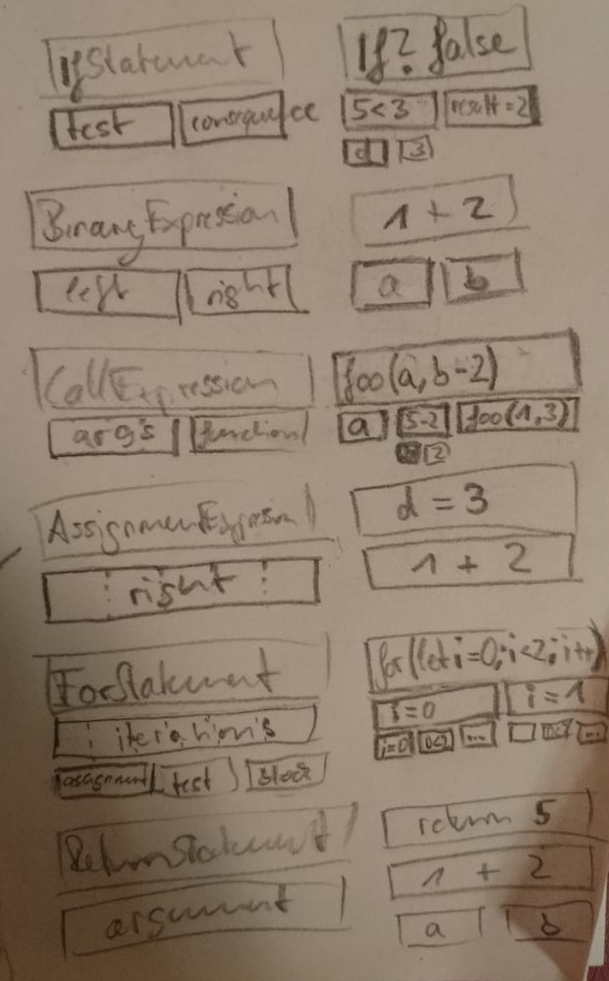 IfStatement If? false
test consequence 5<3 result=2
d 3
BinaryExpression 1 + 2
left right a b
CallExpression foo(a, b-2)
args function a 5-2 foo(1,3)
2
AssignmentExpression d = 3
right 1 + 2
ForStatement for(let i=0; i<2; i++)
iterations i=0 i=1
assignment test block i=0 0<2 ... ...
ReturnStatement return 5
argument 1 + 2
a b